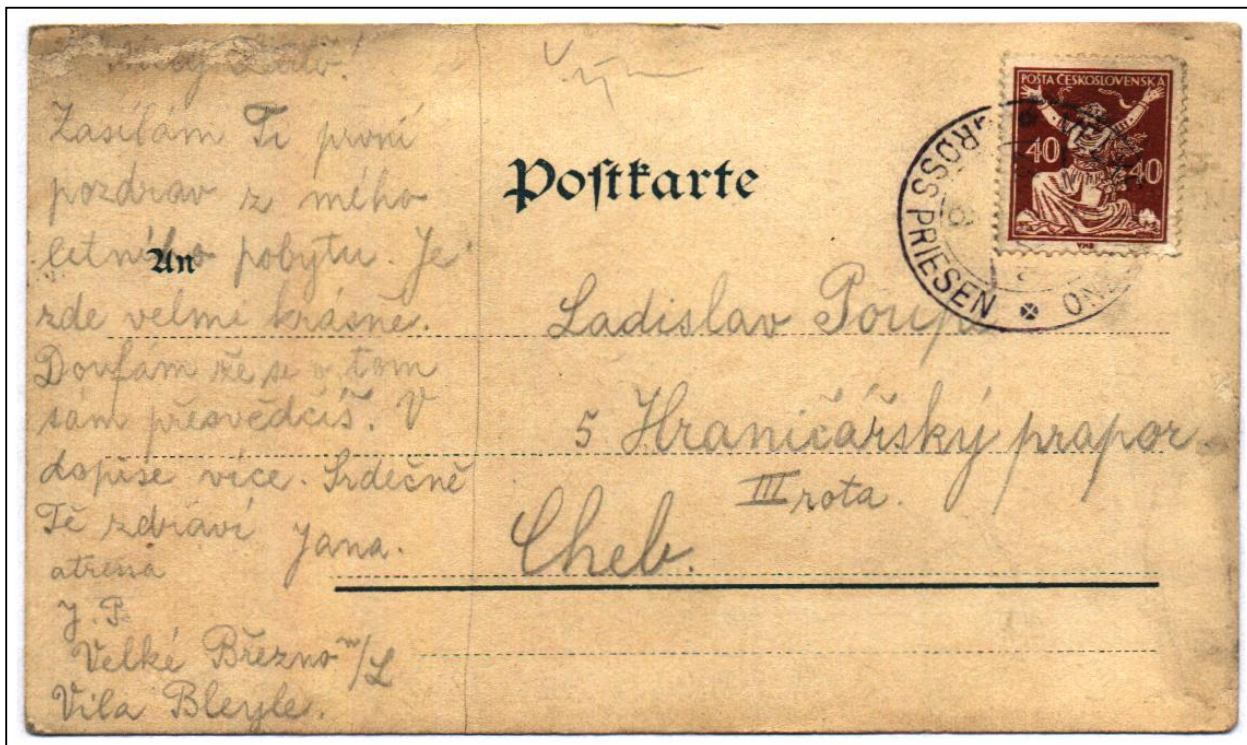 Milý Láďo!
Zasílám Ti první
pozdrav z mého
letního pobytu. Je
zde velmi krásně.
Doufám že se o tom
sám přesvědčíš. V
dopise více. Srdečně
Tě zdraví Jana.
atresa
J. P.
Velké Březno n/L
Vila Bleyle.
Postkarte
An
POŠTA ČESKOSLOVENSKÁ
40 40
GROSS PRIESEN
Ladislav
5 Hraničářský prapor
III rota.
Cheb.